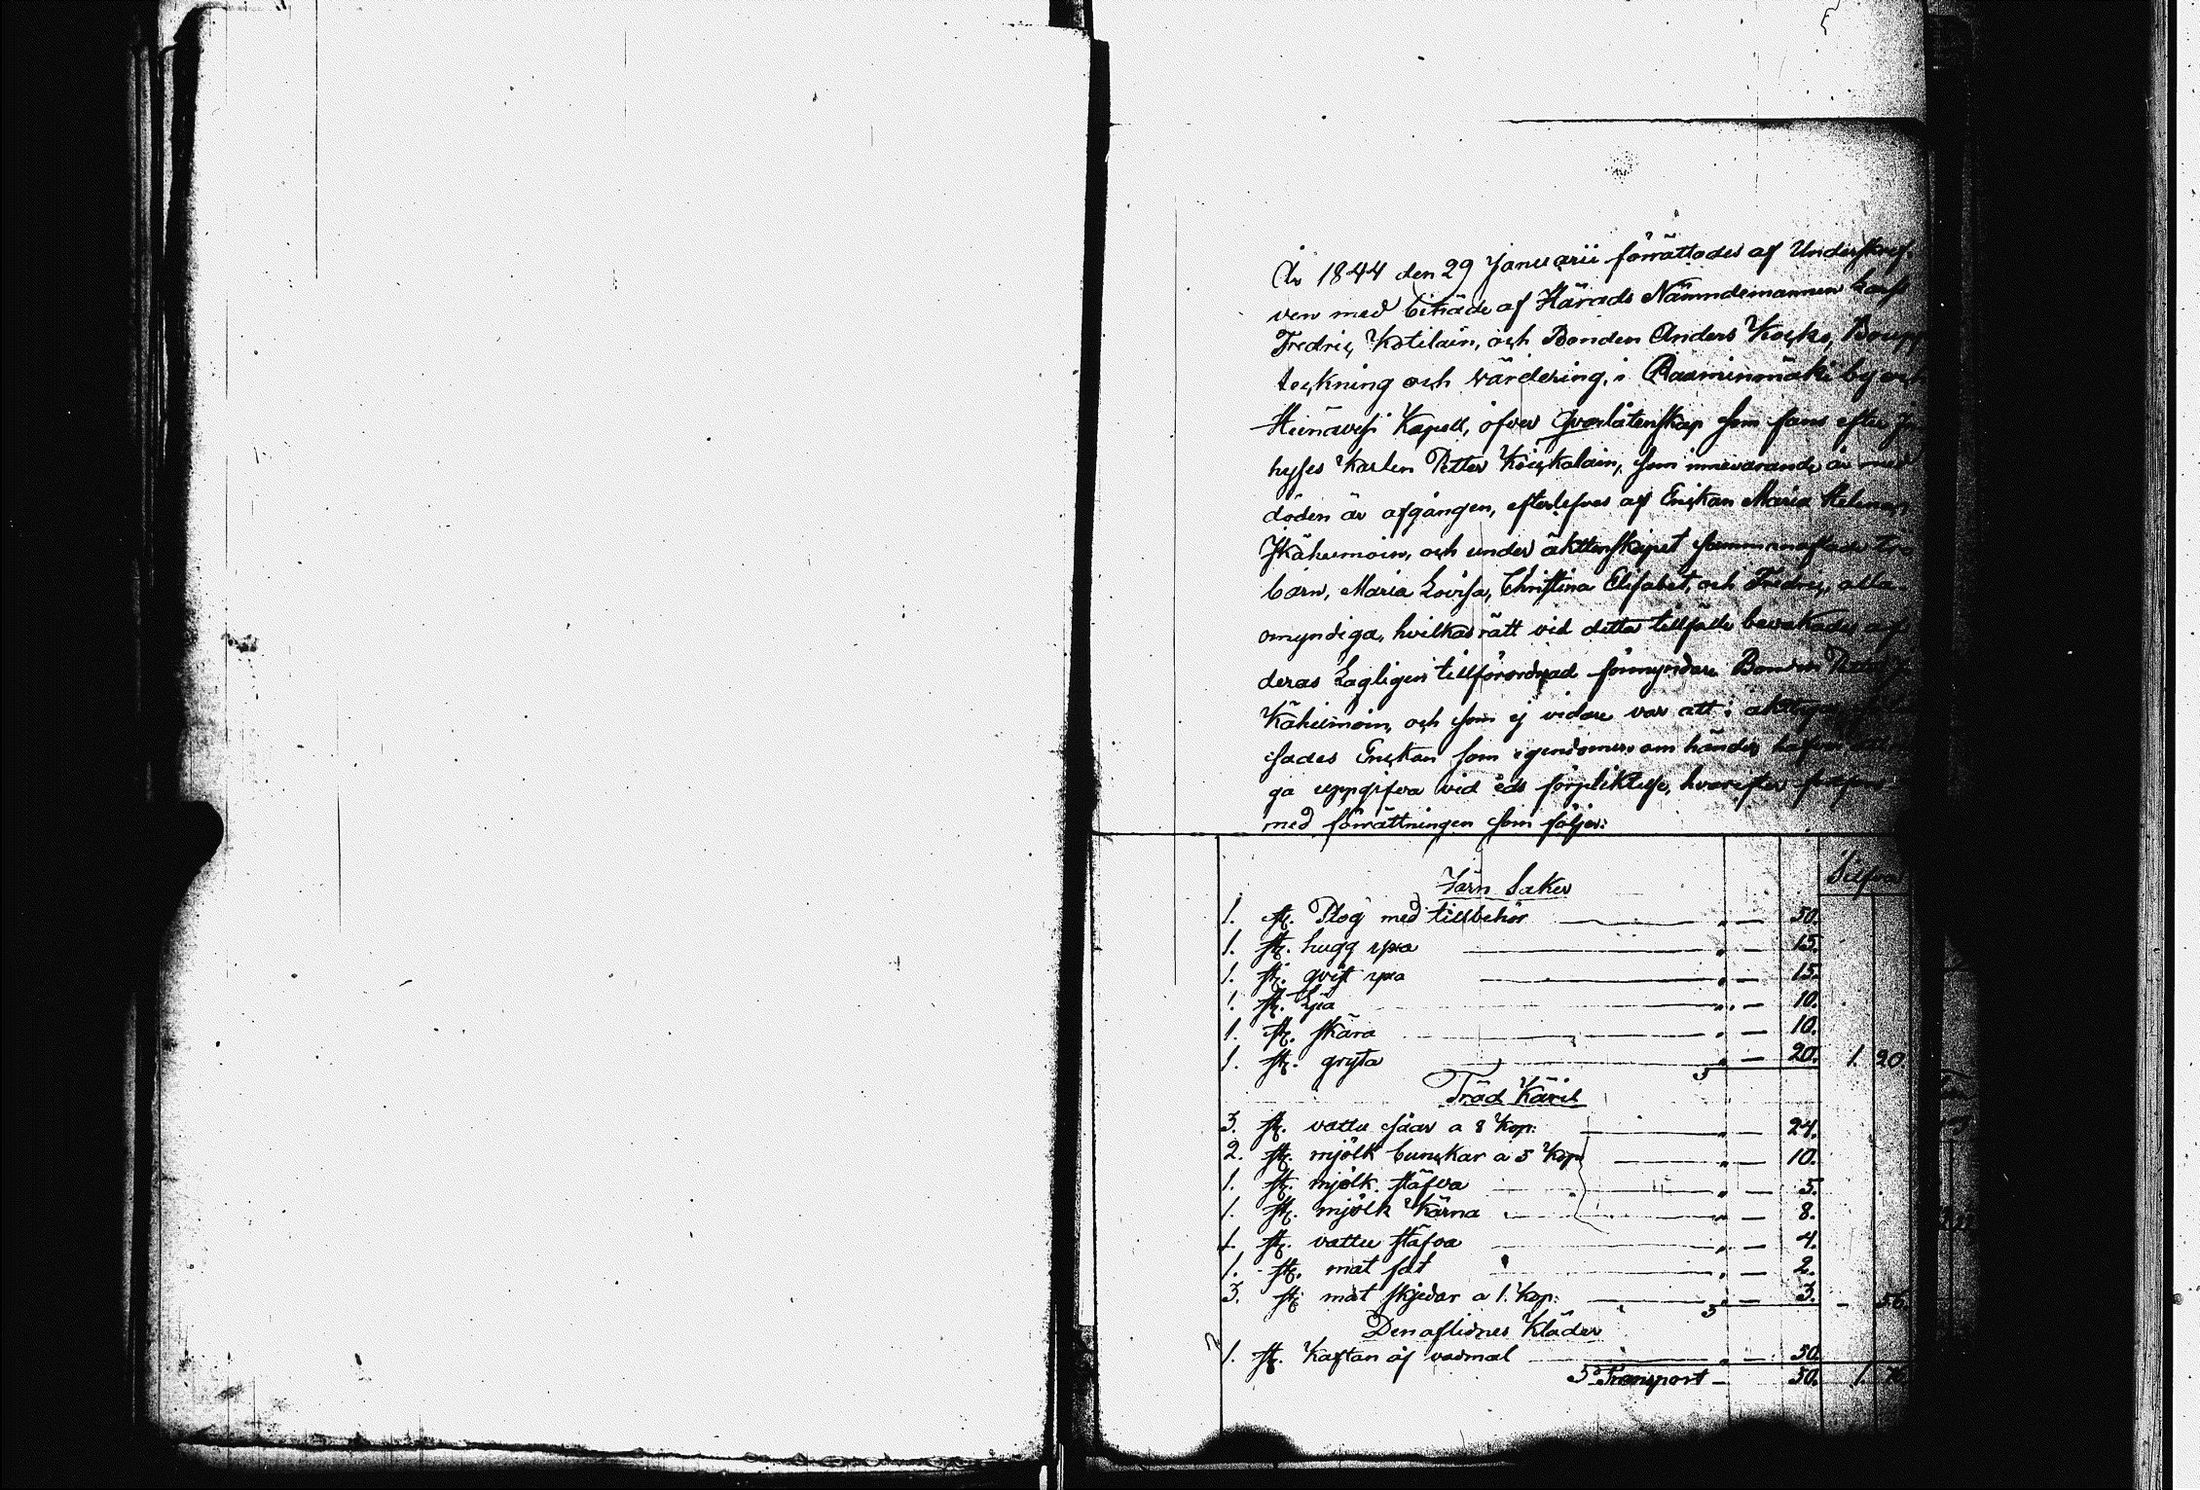 År 1844 den 29 Januarii förrättades af Underskref-
ven med biträde af Härads Nämndemannen
Fredric Kotilain, och Bonden Anders Kocko,Boupp
teckning och värdering, i Rasminmäki by och
Heinävesi Kapell, öfver qvarlåtenskap som fans efter In
hyses Karlen Petter Koickalain, som innevarande år med
döden är afgången, efterlefves af Enckan Maria Helena
Käheimoin, och under äktenskapet sammanaflade tre
barn, Maria Lovisa, Christina Elisabet, och Fredric, alla
omyndiga, hvilkas rätt vid detta tillfälle bevakades af
deras Lagligen tillförordnad förmyndare Bonden
Käheimoin, och som ej vidare var att i
sades Enckan som egendomen om händer
ga uppgifva vid eds förpliktelse, hvarefter
med förrättningen som följer:
Silfver
Järn Saker
1. st. Plog med tillbehör " — 50.
1. st. hugg yxa " — 15.
1. st. qvist yxa " — 15.
1. st. Lia " — 10.
1. st. skära " — 10.
1. st. gryta " — 20. 1. 20.
Träd Käril
3. st. vattu såar a 8 Kop: " — 24.
2. st. mjölk bunckar a 5 Kop " — 10.
1. st. mjölk stäfva " — 5.
1. st. mjölk Kärna " — 8.
1. st. vattu stäfva " — 4.
1. st. mat fat " — 2.
3. st. mat skjedar a 1. Kop: " — 3. – 56.
Den aflidnes Kläder
1. st. Kaftan af vadmal " — 50.
Transport – 50. 1. 76